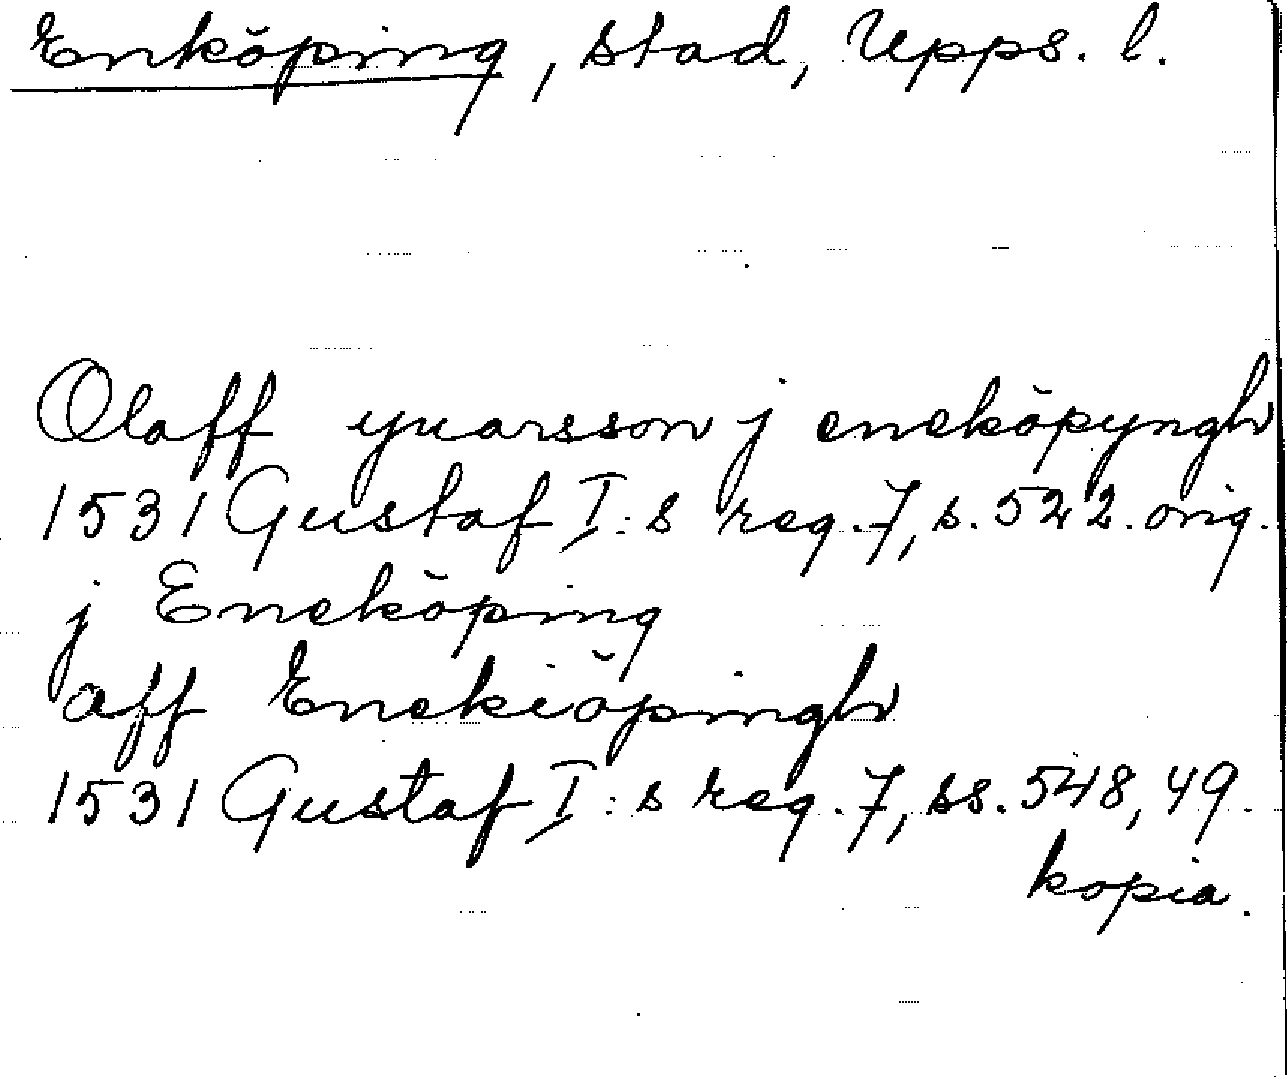 Enköping, stad, Upps. l.
Olaff yuarsson j eneköpyngh
1531 Gustaf I:s reg. 7, s. 522. orig.
j Eneköping
aff Enekiöpingh
1531 Gustaf I:s reg. 7, ss. 548, 49.
kopia.